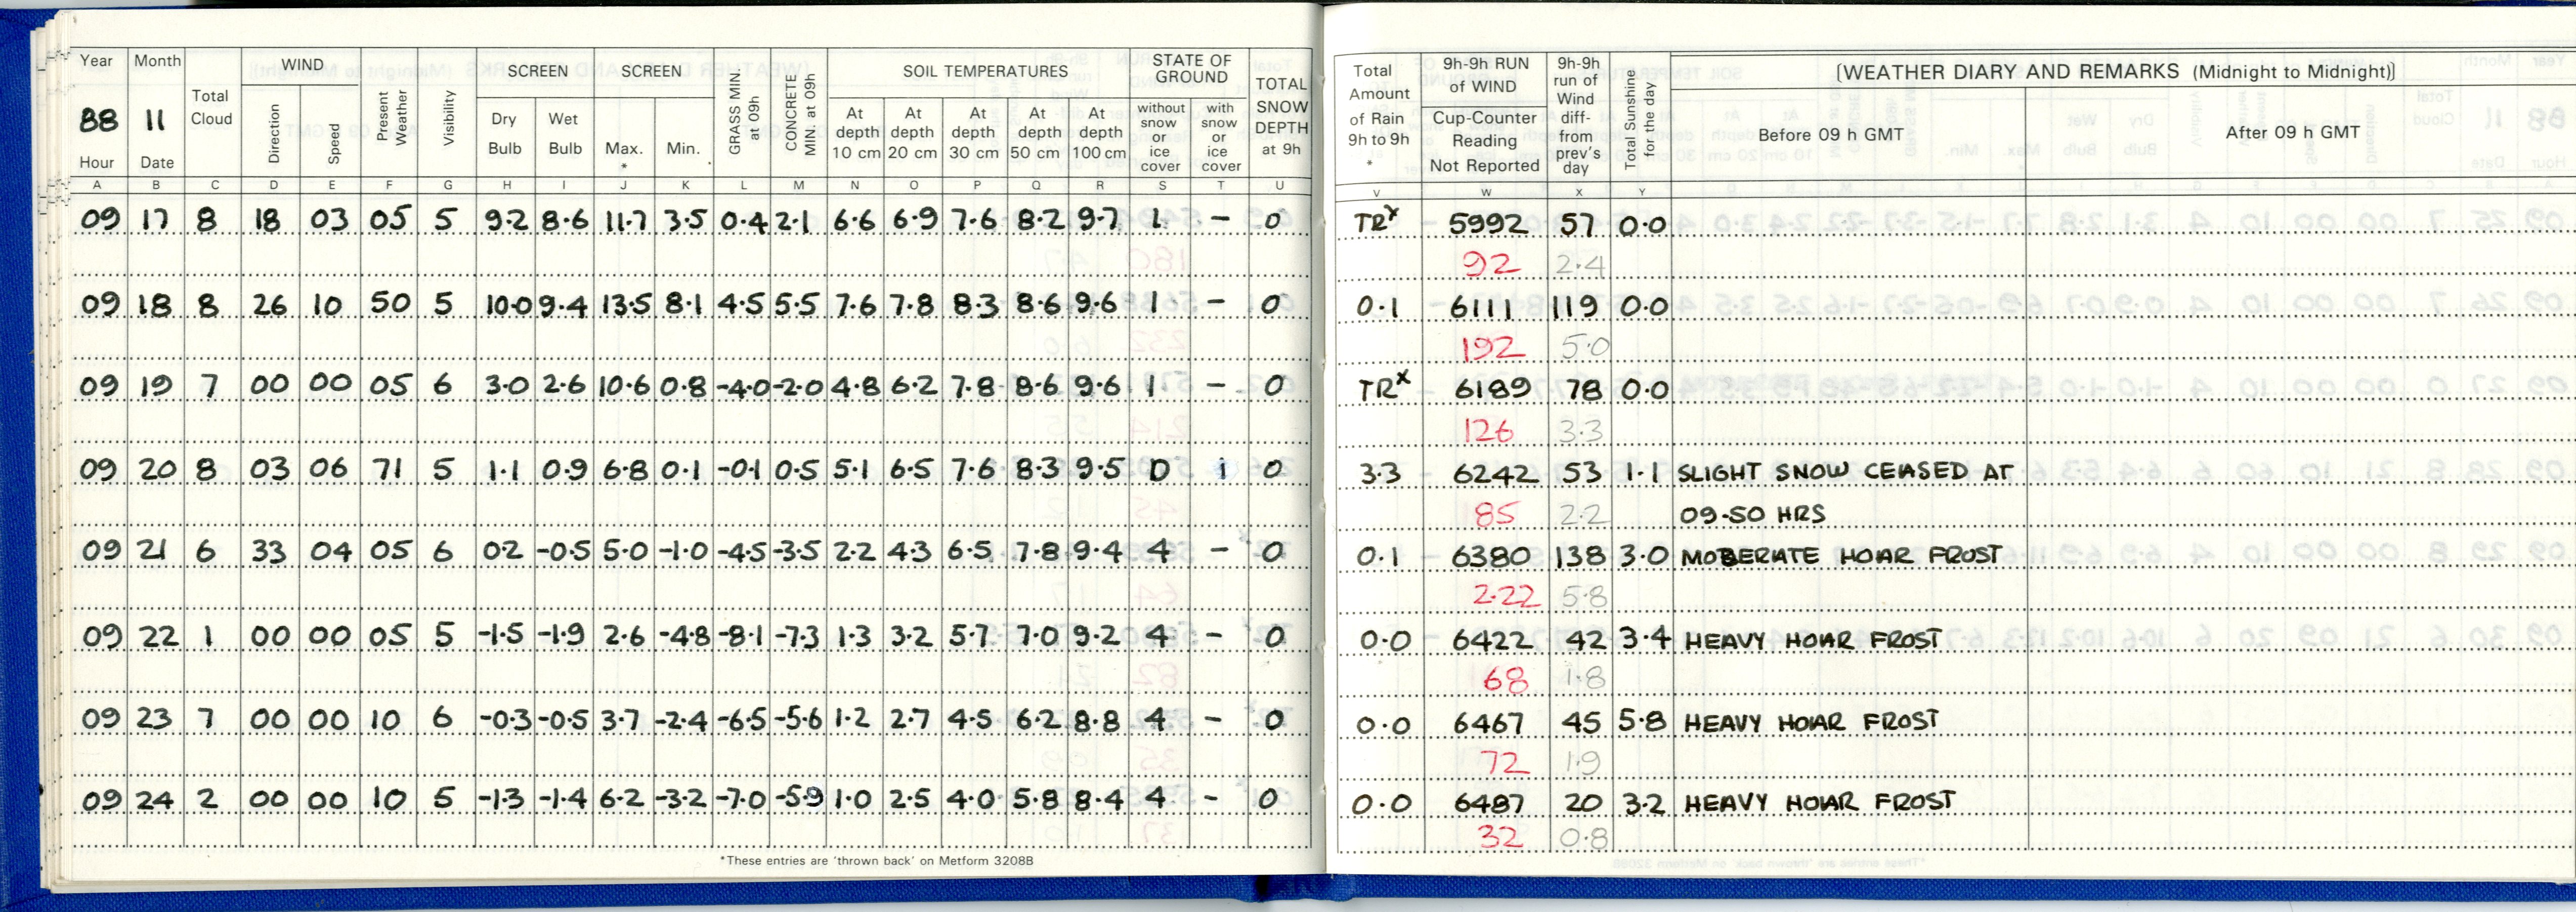 Year Month WIND SCREEN SCREEN SOIL TEMPERATURES STATE OF GROUND
88 11 Total Cloud Direction Speed Present Weather Visibility Dry Bulb Wet Bulb Max. * Min. GRASS MIN. at 09h CONCRETE MIN. at 09h At depth 10 cm At depth 20 cm At depth 30 cm At depth 50 cm At depth 100 cm without snow or ice cover with snow or ice cover TOTAL SNOW DEPTH at 9h
Hour Date
A B C D E F G H I J K L M N O P Q R S T U
09 17 8 18 03 05 5 9.2 8.6 11.7 3.5 0.4 2.1 6.6 6.9 7.6 8.2 9.7 1 – 0
09 18 8 26 10 50 5 10.0 9.4 13.5 8.1 4.5 5.5 7.6 7.8 8.3 8.6 9.6 1 – 0
09 19 7 00 00 05 6 3.0 2.6 10.6 0.8 -4.0 -2.0 4.8 6.2 7.8 8.6 9.6 1 – 0
09 20 8 03 06 71 5 1.1 0.9 6.8 0.1 -0.1 0.5 5.1 6.5 7.6 8.3 9.5 D 1 0
09 21 6 33 04 05 6 0.2 -0.5 5.0 -1.0 -4.5 -3.5 2.2 4.3 6.5 7.8 9.4 4 – 0
09 22 1 00 00 05 5 -1.5 -1.9 2.6 -4.8 -8.1 -7.3 1.3 3.2 5.7 7.0 9.2 4 – 0
09 23 7 00 00 10 6 -0.3 -0.5 3.7 -2.4 -6.5 -5.6 1.2 2.7 4.5 6.2 8.8 4 – 0
09 24 2 00 00 10 5 -1.3 -1.4 6.2 -3.2 -7.0 -5.9 1.0 2.5 4.0 5.8 8.4 4 – 0
*These entries are 'thrown back' on Metform 3208B
Total Amount of Rain 9h to 9h * 9h-9h RUN of WIND Cup-Counter Reading Not Reported 9h-9h run of Wind diff- from prev's day Total Sunshine for the day [WEATHER DIARY AND REMARKS (Midnight to Midnight)]
Before 09 h GMT After 09 h GMT
V W X Y
TRx 5992 57 0.0
92 2.4
0.1 6111 119 0.0
192 5.0
TRx 6189 78 0.0
126 3.3
3.3 6242 53 1.1 SLIGHT SNOW CEASED AT
85 2.2 09.50 HRS
0.1 6380 138 3.0 MODERATE HOAR FROST
2.22 5.8
0.0 6422 42 3.4 HEAVY HOAR FROST
68 1.8
0.0 6467 45 5.8 HEAVY HOAR FROST
72 1.9
0.0 6487 20 3.2 HEAVY HOAR FROST
32 0.8